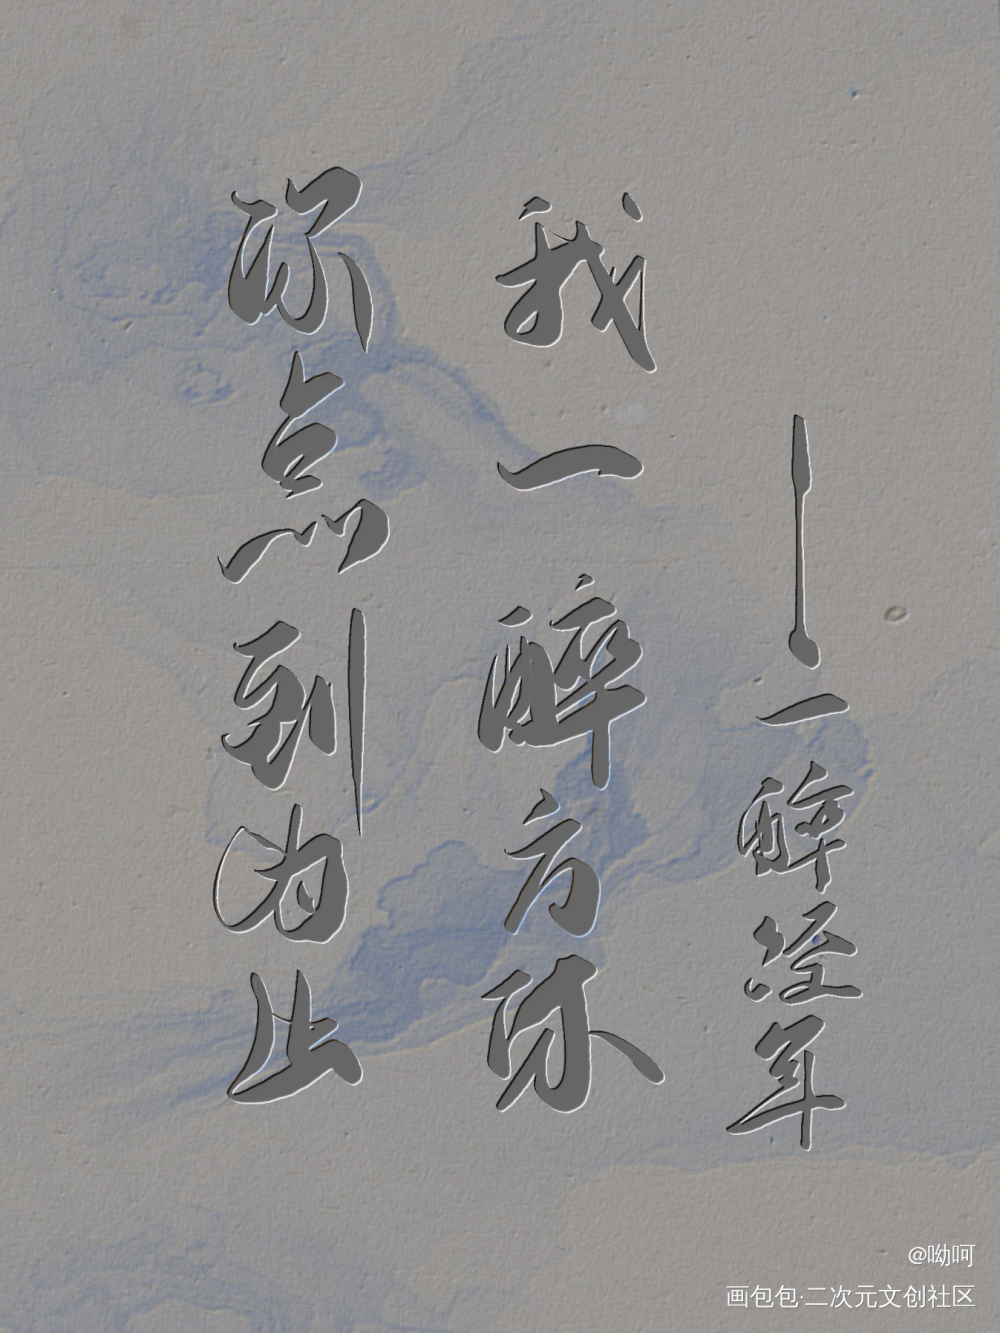 你点到为止
我一醉方休
——一醉经年
@呦呵
画包包·二次元文创社区